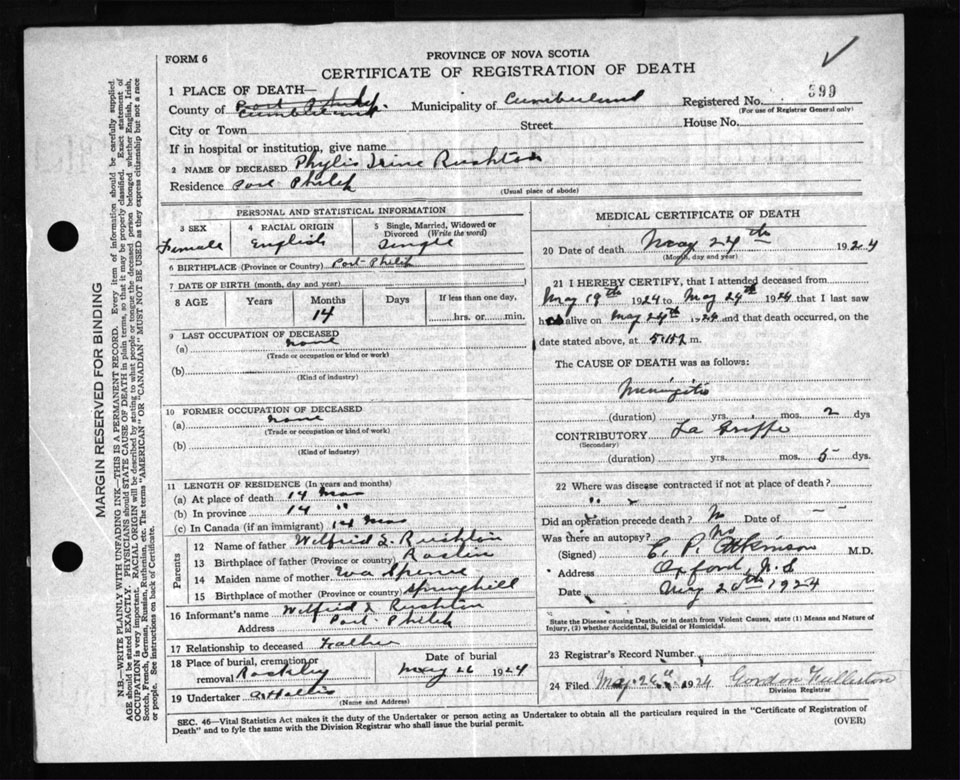 FORM 6
PROVINCE OF NOVA SCOTIA
CERTIFICATE OF REGISTRATION OF DEATH
1 PLACE OF DEATH—
County of Cumberland Municipality of Cumberland Registered No. 399
(For use of Registrar General only)
City or Town Street House No.
If in hospital or institution, give name
2 NAME OF DECEASED Phylis Irine Rushton
Residence Port Philip
(Usual place of abode)
PERSONAL AND STATISTICAL INFORMATION
3 SEX 4 RACIAL ORIGIN 5 Single, Married, Widowed or Divorced (Write the word)
Female English Single
6 BIRTHPLACE (Province or Country) Port Philip
7 DATE OF BIRTH (month, day and year)
8 AGE Years Months Days If less than one day,
14 hrs. or min.
9 LAST OCCUPATION OF DECEASED
(a) none
(Trade or occupation or kind or work)
(b)
(Kind of industry)
10 FORMER OCCUPATION OF DECEASED
(a) none
(Trade or occupation or kind of work)
(b)
(Kind of industry)
11 LENGTH OF RESIDENCE (In years and months)
(a) At place of death 14 Mos
(b) In province 14 "
(c) In Canada (if an immigrant) 14 Mos
Parents
12 Name of father Wilfrid L. Rushton
13 Birthplace of father (Province or country)
14 Maiden name of mother Eva
15 Birthplace of mother (Province or country) Springhill
16 Informant's name Wilfrid L Rushton
Address Port Philip
17 Relationship to deceased Father
18 Place of burial, cremation or removal Rockley Date of burial May 26 1924
19 Undertaker
(Name and Address)
MEDICAL CERTIFICATE OF DEATH
20 Date of death May 24th 1924
(Month, day and year)
21 I HEREBY CERTIFY, that I attended deceased from
May 19th 1924 to May 24th 1924 that I last saw
h alive on May 24th 1924 and that death occurred, on the
date stated above, at m.
The CAUSE OF DEATH was as follows:
Meningitis
(duration) yrs. mos. 2 dys
CONTRIBUTORY La Grippe
(Secondary)
(duration) yrs. mos. 5 dys.
22 Where was disease contracted if not at place of death?
Did an operation precede death? No Date of – –
Was there an autopsy? No
(Signed) C. P. Atkinson M.D.
Address Oxford, N.S
Date 1924
State the Disease causing Death, or in death from Violent Causes, state (1) Means and Nature of Injury, (2) whether Accidental, Suicidal or Homicidal.
23 Registrar's Record Number
24 Filed May 26th 1924 Gordon
Division Registrar
SEC. 46—Vital Statistics Act makes it the duty of the Undertaker or person acting as Undertaker to obtain all the particulars required in the "Certificate of Registration of
Death" and to fyle the same with the Division Registrar who shall issue the burial permit.
(OVER)
MARGIN RESERVED FOR BINDING
N.B.—WRITE PLAINLY WITH UNFADING INK—THIS IS A PERMANENT RECORD. Every item of information should be carefully supplied.
AGE should be stated EXACTLY. PHYSICIANS should STATE CAUSE OF DEATH in plain terms, so that it may be properly classified. Exact statement of
OCCUPATION is very important. RACIAL ORIGIN will be described by stating to what people or tongue the deceased person belonged whether English, Irish,
Scotch, French, German, Russian, Ruthenian, etc. The terms "AMERICAN" OR "CANADIAN" MUST NOT BE USED as they express citizenship but not a race
or people. See instructions on back of Certificate.